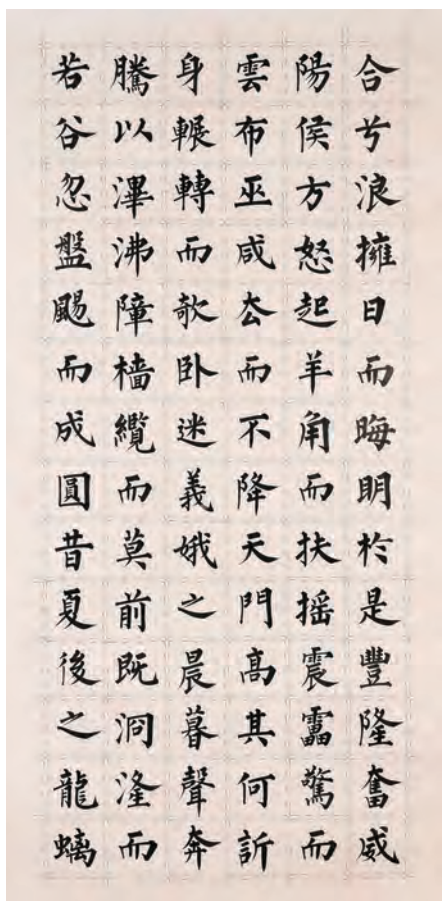 合兮浪擁日而晦明於是豐隆奮威
陽侯方怒起羊角而扶摇震靁驚而
雲布巫咸厺而不降天門高其何訢
身輾轉而欹卧迷義娥之晨暮聲奔
騰以滭沸障檣纜而莫前既洞浲而
若谷忽盤颺而成圓昔夏後之龍螭